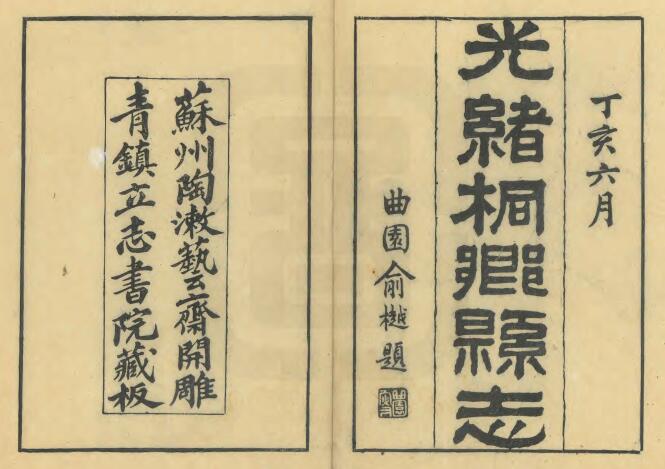 丁亥六月
光緒桐鄉縣志
曲園俞樾題
蘇州陶漱藝齋開雕
青鎮立志書院藏板